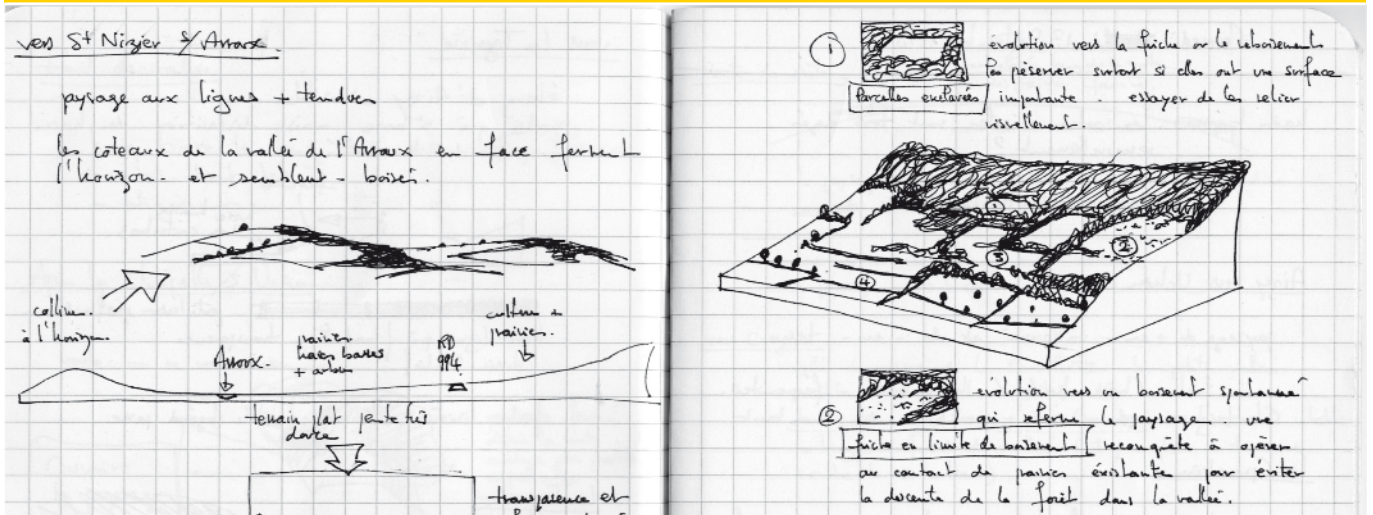 vers St Nizier s/ Arroux
paysage aux lignes + tendues
les coteaux de la vallée de l'Arroux en face ferment
l'horizon - et semblent - boisés.
colline
à l'horizon
Arroux
prairies
haies basses
+ arbres
RD
994
cultures +
prairies
terrain plat pente très
douce
transparence et
①
évolution vers la friche ou le reboisement
les préserver surtout si elles ont une surface
Parcelles enclavées importante. essayer de les relier
visuellement.
①
②
③
④
②
évolution vers un boisement spontané
qui referme le paysage. une
friche en limite de boisement reconquête à opérer
au contact de prairies existante pour éviter
la descente de la forêt dans la vallée.